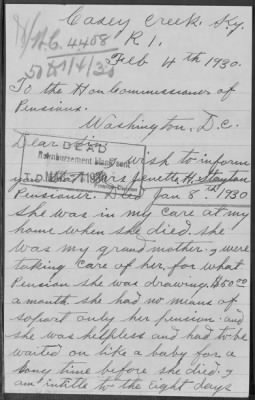 Casey Creek. Ky.
R 1.
Feb 4th 1930.
To the Hon Commissioner of
Pensions.
Washington, D.C.
Dear
DEAD
Reimbursement
wish to inform
Pensioner. Died Jan 8th 1930
She was in my care at my
home when she died. she
was my grandmother. I were
taking care of her for what
Pension she was drawing. $50.00
a month she had no means of
soport only her pension. and
she was helpless and had to be
waited on like a baby for a
long time before she died. I
am intitle to the Eight days